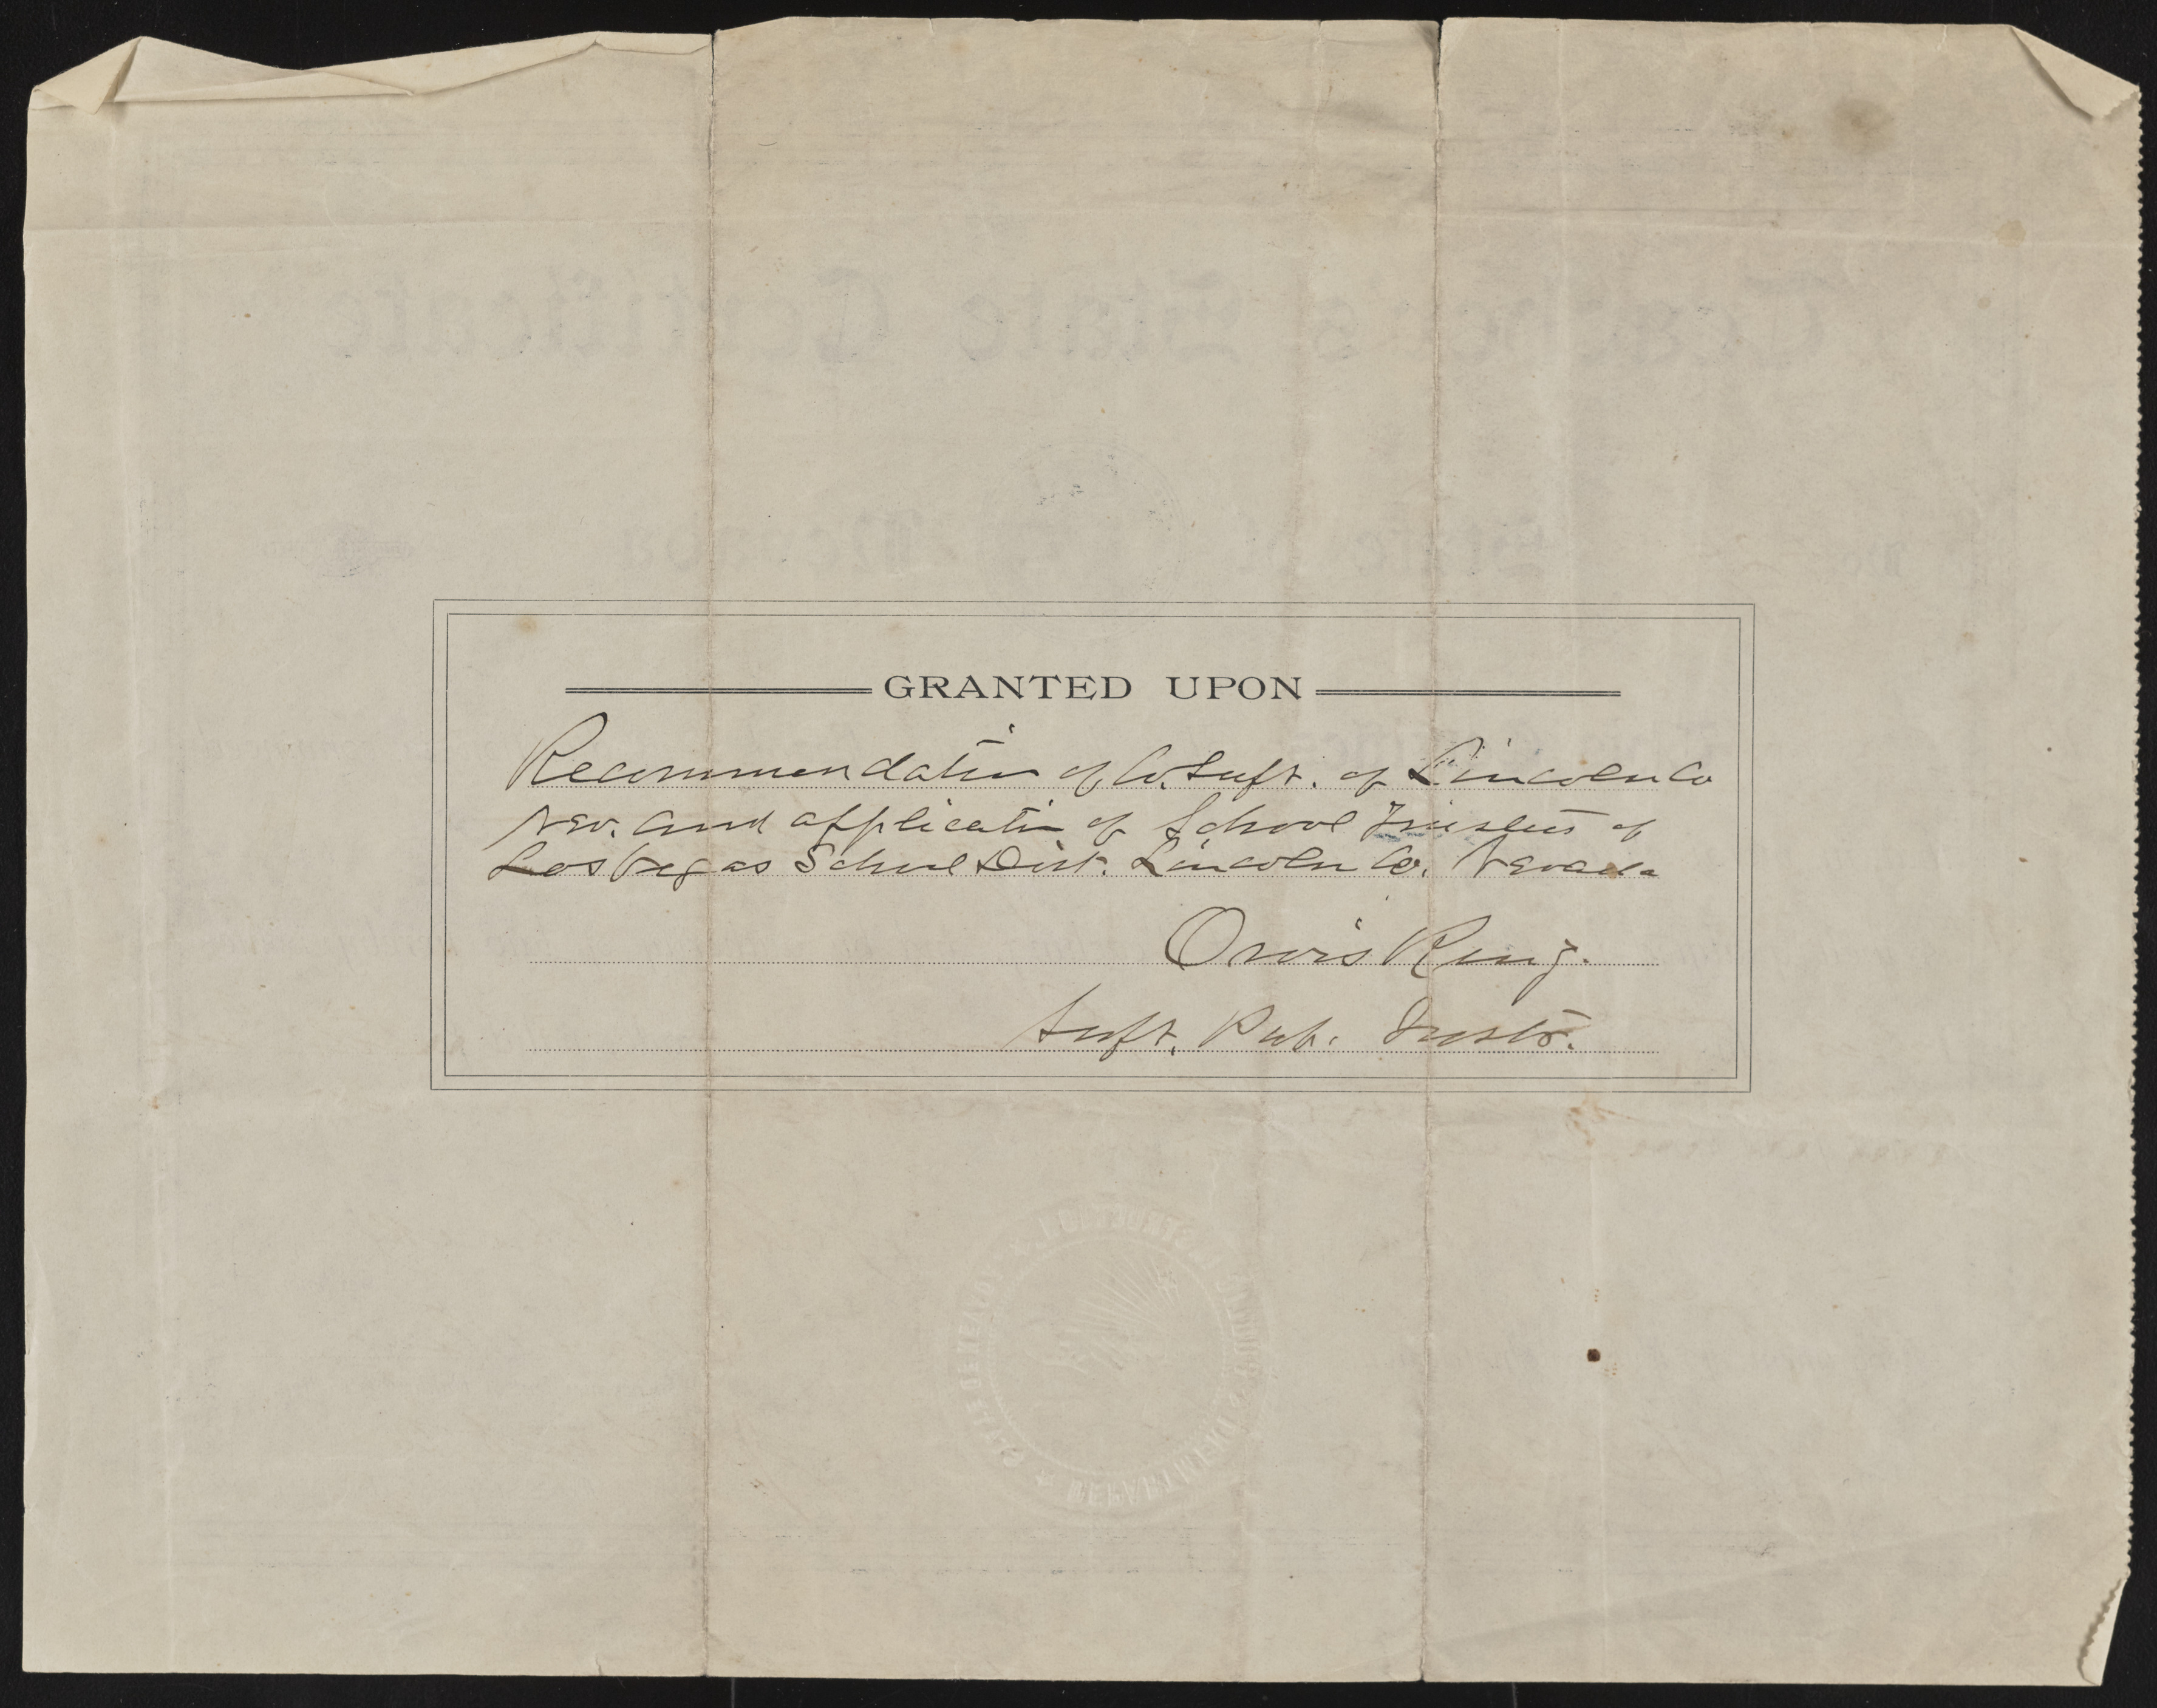 GRANTED UPON
Recommendation of Co. Supt. of Lincoln Co
Nev. and application of School Trustees of
Las Vegas School Dist. Lincoln Co. Nevada
Orvis Ring.
Supt. Pub. Instr.